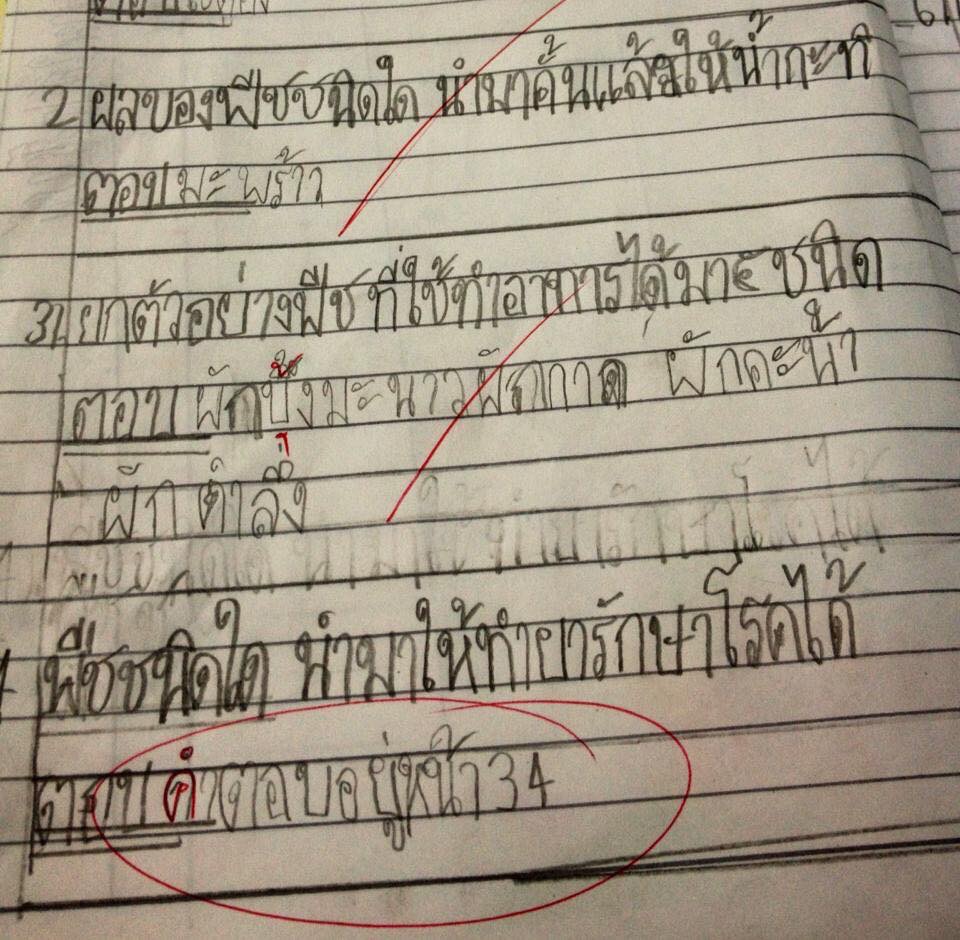 2 ผลของพืชชนิดใด นำมาคั้นแล้วให้น้ำกะทิ
ตอบ มะพร้าว
3 ยกตัวอย่างพืชที่ใช้ทำอาหารได้มา 5 ชนิด
ตอบ ผักบุ้ง มะนาว ผักกาด ผักคะน้า
ผักตำลึง
4 พืชชนิดใด นำมาให้ทำยารักษาโรคได้
ตอบ คำตอบอยู่หน้า 34